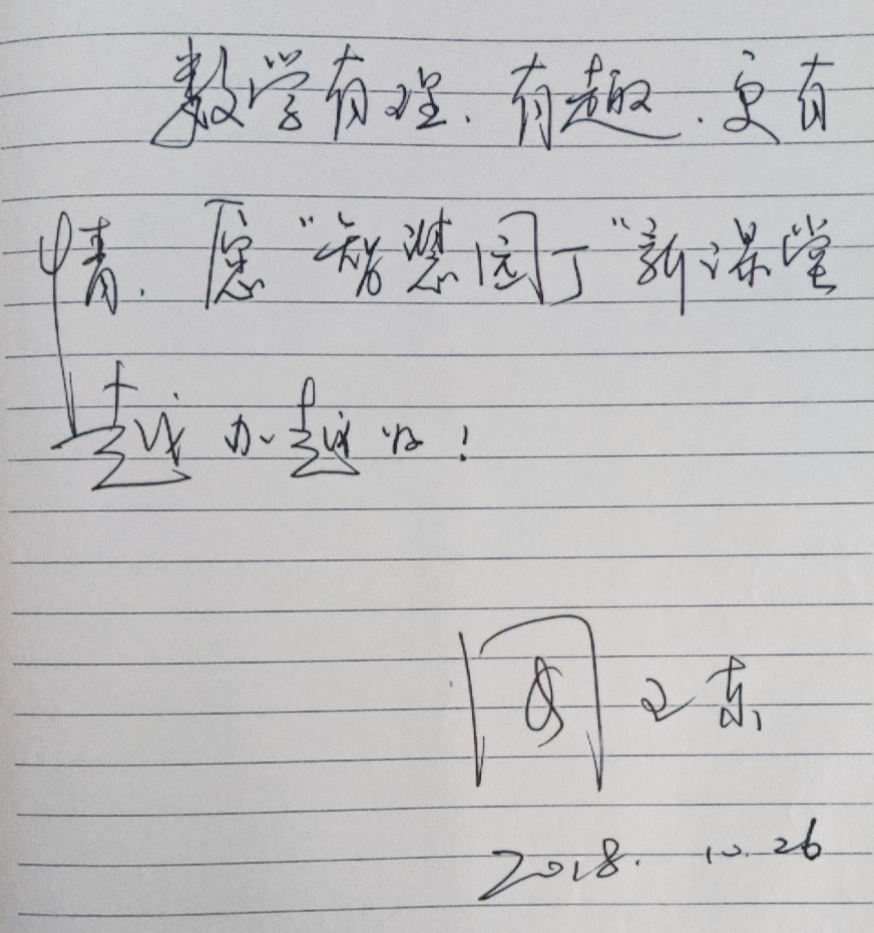 数学有理.有趣.更有
情.愿"智慧园丁"新课堂
越办越好!
2018.10.26